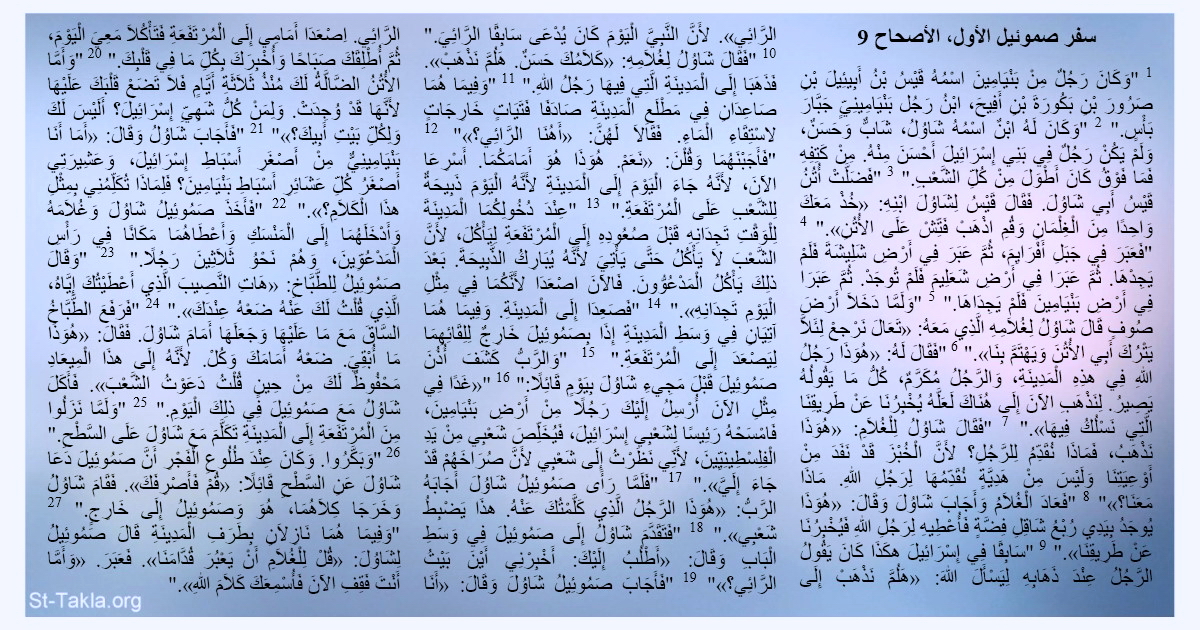 سفر صموئيل الأول، الأصحاح 9
1 "وَكَانَ رَجُلٌ مِنْ بَنْيَامِينَ اسْمُهُ قَيْسُ بْنُ أَبِيئِيلَ بْنِ
صَرُورَ بْنِ بَكُورَةَ بْنِ أَفِيحَ، ابْنُ رَجُل بَنْيَامِينِيٍّ جَبَّارَ
بَأْسٍ." 2 "وَكَانَ لَهُ ابْنٌ اسْمُهُ شَاوُلُ، شَابٌّ وَحَسَنٌ،
وَلَمْ يَكُنْ رَجُلٌ فِي بَنِي إِسْرَائِيلَ أَحْسَنَ مِنْهُ. مِنْ كَتِفِهِ
فَمَا فَوْقُ كَانَ أَطْوَلَ مِنْ كُلِّ الشَّعْبِ." 3 "فَضَلَّتْ أُتُنُ
قَيْسَ أَبِي شَاوُلَ. فَقَالَ قَيْسُ لِشَاوُلَ ابْنِهِ: «خُذْ مَعَكَ
وَاحِدًا مِنَ الْغِلْمَانِ وَقُمِ اذْهَبْ فَتِّشْ عَلَى الأُتُنِ»." 4
"فَعَبَرَ فِي جَبَلِ أَفْرَايِمَ، ثُمَّ عَبَرَ فِي أَرْضِ شَلِيشَةَ فَلَمْ
يَجِدْهَا. ثُمَّ عَبَرَا فِي أَرْضِ شَعَلِيمَ فَلَمْ تُوجَدْ. ثُمَّ عَبَرَا
فِي أَرْضِ بَنْيَامِينَ فَلَمْ يَجِدَاهَا." 5 "وَلَمَّا دَخَلاَ أَرْضَ
صُوفٍ قَالَ شَاوُلُ لِغُلاَمِهِ الَّذِي مَعَهُ: «تَعَالَ نَرْجعْ لِئَلاَّ
يَتْرُكَ أَبِي الأُتُنَ وَيَهْتَمَّ بِنَا»." 6 "فَقَالَ لَهُ: «هُوَذَا رَجُلُ
اللهِ فِي هذِهِ الْمَدِينَةِ، وَالرَّجُلُ مُكَرَّمٌ، كُلُّ مَا يَقُولُهُ
يَصِيرُ. لِنَذْهَبِ الآنَ إِلَى هُنَاكَ لَعَلَّهُ يُخْبِرُنَا عَنْ طَرِيقِنَا
الَّتِي نَسْلُكُ فِيهَا»." 7 "فَقَالَ شَاوُلُ لِلْغُلاَمِ: «هُوَذَا
نَذْهَبُ، فَمَاذَا نُقَدِّمُ لِلرَّجُلِ؟ لأَنَّ الْخُبْزَ قَدْ نَفَدَ مِنْ
أَوْعِيَتِنَا وَلَيْسَ مِنْ هَدِيَّةٍ نُقَدِّمُهَا لِرَجُلِ اللهِ. مَاذَا
مَعَنَا؟»" 8 "فَعَادَ الْغُلاَمُ وَأَجَابَ شَاوُلَ وَقَالَ: «هُوَذَا
يُوجَدُ بِيَدِي رُبْعُ شَاقِلِ فِضَّةٍ فَأُعْطِيهِ لِرَجُلِ اللهِ فَيُخْبِرُنَا
عَنْ طَرِيقِنَا»." 9 "سَابِقًا فِي إِسْرَائِيلَ هكَذَا كَانَ يَقُولُ
الرَّجُلُ عِنْدَ ذَهَابِهِ لِيَسْأَلَ اللهَ: «هَلُمَّ نَذْهَبْ إِلَى
الرَّائِي». لأَنَّ النَّبِيَّ الْيَوْمَ كَانَ يُدْعَى سَابِقًا الرَّائِيَ."
10 "فَقَالَ شَاوُلُ لِغُلاَمِهِ: «كَلاَمُكَ حَسَنٌ. هَلُمَّ نَذْهَبْ».
فَذَهَبَا إِلَى الْمَدِينَةِ الَّتِي فِيهَا رَجُلُ اللهِ." 11 "وَفِيمَا هُمَا
صَاعِدَانِ فِي مَطْلَعِ الْمَدِينَةِ صَادَفَا فَتَيَاتٍ خَارِجَاتٍ
لاسْتِقَاءِ الْمَاءِ. فَقَالاَ لَهُنَّ: «أَهُنَا الرَّائِي؟»" 12
"فَأَجَبْنَهُمَا وَقُلْنَ: «نَعَمْ. هُوَذَا هُوَ أَمَامَكُمَا. أَسْرِعَا
الآنَ، لأَنَّهُ جَاءَ الْيَوْمَ إِلَى الْمَدِينَةِ لأَنَّهُ الْيَوْمَ ذَبِيحَةٌ
لِلشَّعْبِ عَلَى الْمُرْتَفَعَةِ." 13 "عِنْدَ دُخُولِكُمَا الْمَدِينَةَ
لِلْوَقْتِ تَجِدَانِهِ قَبْلَ صُعُودِهِ إِلَى الْمُرْتَفَعَةِ لِيَأْكُلَ، لأَنَّ
الشَّعْبَ لاَ يَأْكُلُ حَتَّى يَأْتِيَ لأَنَّهُ يُبَارِكُ الذَّبِيحَةَ. بَعْدَ
ذلِكَ يَأْكُلُ الْمَدْعُوُّونَ. فَالآنَ اصْعَدَا لأَنَّكُمَا فِي مِثْلِ
الْيَوْمِ تَجِدَانِهِ»." 14 "فَصَعِدَا إِلَى الْمَدِينَةِ. وَفِيمَا هُمَا
آتِيَانِ فِي وَسَطِ الْمَدِينَةِ إِذَا بِصَمُوئِيلَ خَارِجٌ لِلِقَائِهِمَا
لِيَصْعَدَ إِلَى الْمُرْتَفَعَةِ." 15 "وَالرَّبُّ كَشَفَ أُذُنَ
صَمُوئِيلَ قَبْلَ مَجِيءِ شَاوُلَ بِيَوْمٍ قَائِلًا:" 16 "«غَدًا فِي
مِثْلِ الآنَ أُرْسِلُ إِلَيْكَ رَجُلًا مِنْ أَرْضِ بَنْيَامِينَ،
فَامْسَحْهُ رَئِيسًا لِشَعْبِي إِسْرَائِيلَ، فَيُخَلِّصَ شَعْبِي مِنْ يَدِ
الْفِلِسْطِينِيِّينَ، لأَنِّي نَظَرْتُ إِلَى شَعْبِي لأَنَّ صُرَاخَهُمْ قَدْ
جَاءَ إِلَيَّ»." 17 "فَلَمَّا رَأَى صَمُوئِيلُ شَاوُلَ أَجَابَهُ
الرَّبُّ: «هُوَذَا الرَّجُلُ الَّذِي كَلَّمْتُكَ عَنْهُ. هذَا يَضْبِطُ
شَعْبِي»." 18 "فَتَقَدَّمَ شَاوُلُ إِلَى صَمُوئِيلَ فِي وَسَطِ
الْبَابِ وَقَالَ: «أَطْلُبُ إِلَيْكَ: أَخْبِرْنِي أَيْنَ بَيْتُ
الرَّائِي؟»" 19 "فَأَجَابَ صَمُوئِيلُ شَاوُلَ وَقَالَ: «أَنَا
الرَّائِي. اِصْعَدَا أَمَامِي إِلَى الْمُرْتَفَعَةِ فَتَأْكُلاَ مَعِيَ الْيَوْمَ،
ثُمَّ أُطْلِقَكَ صَبَاحًا وَأُخْبِرَكَ بِكُلِّ مَا فِي قَلْبِكَ." 20 "وَأَمَّا
الأُتُنُ الضَّالَّةُ لَكَ مُنْذُ ثَلاَثَةِ أَيَّامٍ فَلاَ تَضَعْ قَلْبَكَ عَلَيْهَا
لأَنَّهَا قَدْ وُجِدَتْ. وَلِمَنْ كُلُّ شَهِيِّ إِسْرَائِيلَ؟ أَلَيْسَ لَكَ
وَلِكُلِّ بَيْتِ أَبِيكَ؟»" 21 "فَأَجَابَ شَاوُلُ وَقَالَ: «أَمَا أَنَا
بَنْيَامِينِيٌّ مِنْ أَصْغَرِ أَسْبَاطِ إِسْرَائِيلَ، وَعَشِيرَتِي
أَصْغَرُ كُلِّ عَشَائِرِ أَسْبَاطِ بَنْيَامِينَ؟ فَلِمَاذَا تُكَلِّمُنِي بِمِثْلِ
هذَا الْكَلاَمِ؟»." 22 "فَأَخَذَ صَمُوئِيلُ شَاوُلَ وَغُلاَمَهُ
وَأَدْخَلَهُمَا إِلَى الْمَنْسَكِ وَأَعْطَاهُمَا مَكَانًا فِي رَأْسِ
الْمَدْعُوِّينَ، وَهُمْ نَحْوُ ثَلاَثِينَ رَجُلًا." 23 "وَقَالَ
صَمُوئِيلُ لِلطَّبَّاخِ: «هَاتِ النَّصِيبَ الَّذِي أَعْطَيْتُكَ إِيَّاهُ،
الَّذِي قُلْتُ لَكَ عَنْهُ ضَعْهُ عِنْدَكَ»." 24 "فَرَفَعَ الطَّبَّاخُ
السَّاقَ مَعَ مَا عَلَيْهَا وَجَعَلَهَا أَمَامَ شَاوُلَ. فَقَالَ: «هُوَذَا
مَا أُبْقِيَ. ضَعْهُ أَمَامَكَ وَكُلْ. لأَنَّهُ إِلَى هذَا الْمِيعَادِ
مَحْفُوظٌ لَكَ مِنْ حِينٍ قُلْتُ دَعَوْتُ الشَّعْبَ». فَأَكَلَ
شَاوُلُ مَعَ صَمُوئِيلَ فِي ذلِكَ الْيَوْمِ." 25 "وَلَمَّا نَزَلُوا
مِنَ الْمُرْتَفَعَةِ إِلَى الْمَدِينَةِ تَكَلَّمَ مَعَ شَاوُلَ عَلَى السَّطْحِ."
26 "وَبَكَّرُوا. وَكَانَ عِنْدَ طُلُوعِ الْفَجْرِ أَنَّ صَمُوئِيلَ دَعَا
شَاوُلَ عَنِ السَّطْحِ قَائِلًا: «قُمْ فَأَصْرِفَكَ». فَقَامَ شَاوُلُ
وَخَرَجَا كِلاَهُمَا، هُوَ وَصَمُوئِيلُ إِلَى خَارِجٍ." 27
"وَفِيمَا هُمَا نَازِلاَنِ بِطَرَفِ الْمَدِينَةِ قَالَ صَمُوئِيلُ
لِشَاوُلَ: «قُلْ لِلْغُلاَمِ أَنْ يَعْبُرَ قُدَّامَنَا». فَعَبَرَ. «وَأَمَّا
أَنْتَ فَقِفِ الآنَ فَأُسْمِعَكَ كَلاَمَ اللهِ»."
St-Takla.org